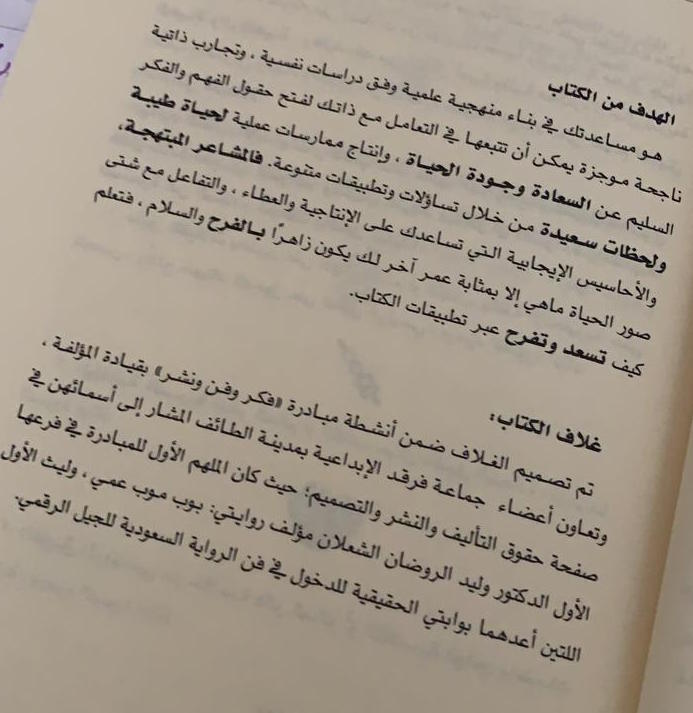 الهدف من الكتاب
هو مساعدتك في بناء منهجية علمية وفق دراسات نفسية ، وتجارب ذاتية
ناجحة موجزة يمكن أن تتبعها في التعامل مع ذاتك لفتح حقول الفهم والفكر
السليم عن السعادة وجودة الحياة ، وإنتاج ممارسات عملية لحياة طيبة
ولحظات سعيدة من خلال تساؤلات وتطبيقات متنوعة. فالمشاعر المبتهجة،
والأحاسيس الإيجابية التي تساعدك على الإنتاجية والعطاء ، والتفاعل مع شتى
صور الحياة ماهي إلا بمثابة عمر آخر لك يكون زاهرًا بالفرح والسلام ، فتعلم
كيف تسعد وتفرح عبر تطبيقات الكتاب.
غلاف الكتاب:
تم تصميم الغلاف ضمن أنشطة مبادرة «فكر وفن ونشر» بقيادة المؤلفة ،
وتعاون أعضاء جماعة فرقد الإبداعية بمدينة الطائف المشار إلى أسمائهن في
صفحة حقوق التأليف والنشر والتصميم؛ حيث كان الملهم الأول للمبادرة في فرعها
الأول الدكتور وليد الروضان الشعلان مؤلف روايتي: بوب موب عمي ، وليث الأول
اللتين أعدهما بوابتي الحقيقية للدخول في فن الرواية السعودية للجيل الرقمي.